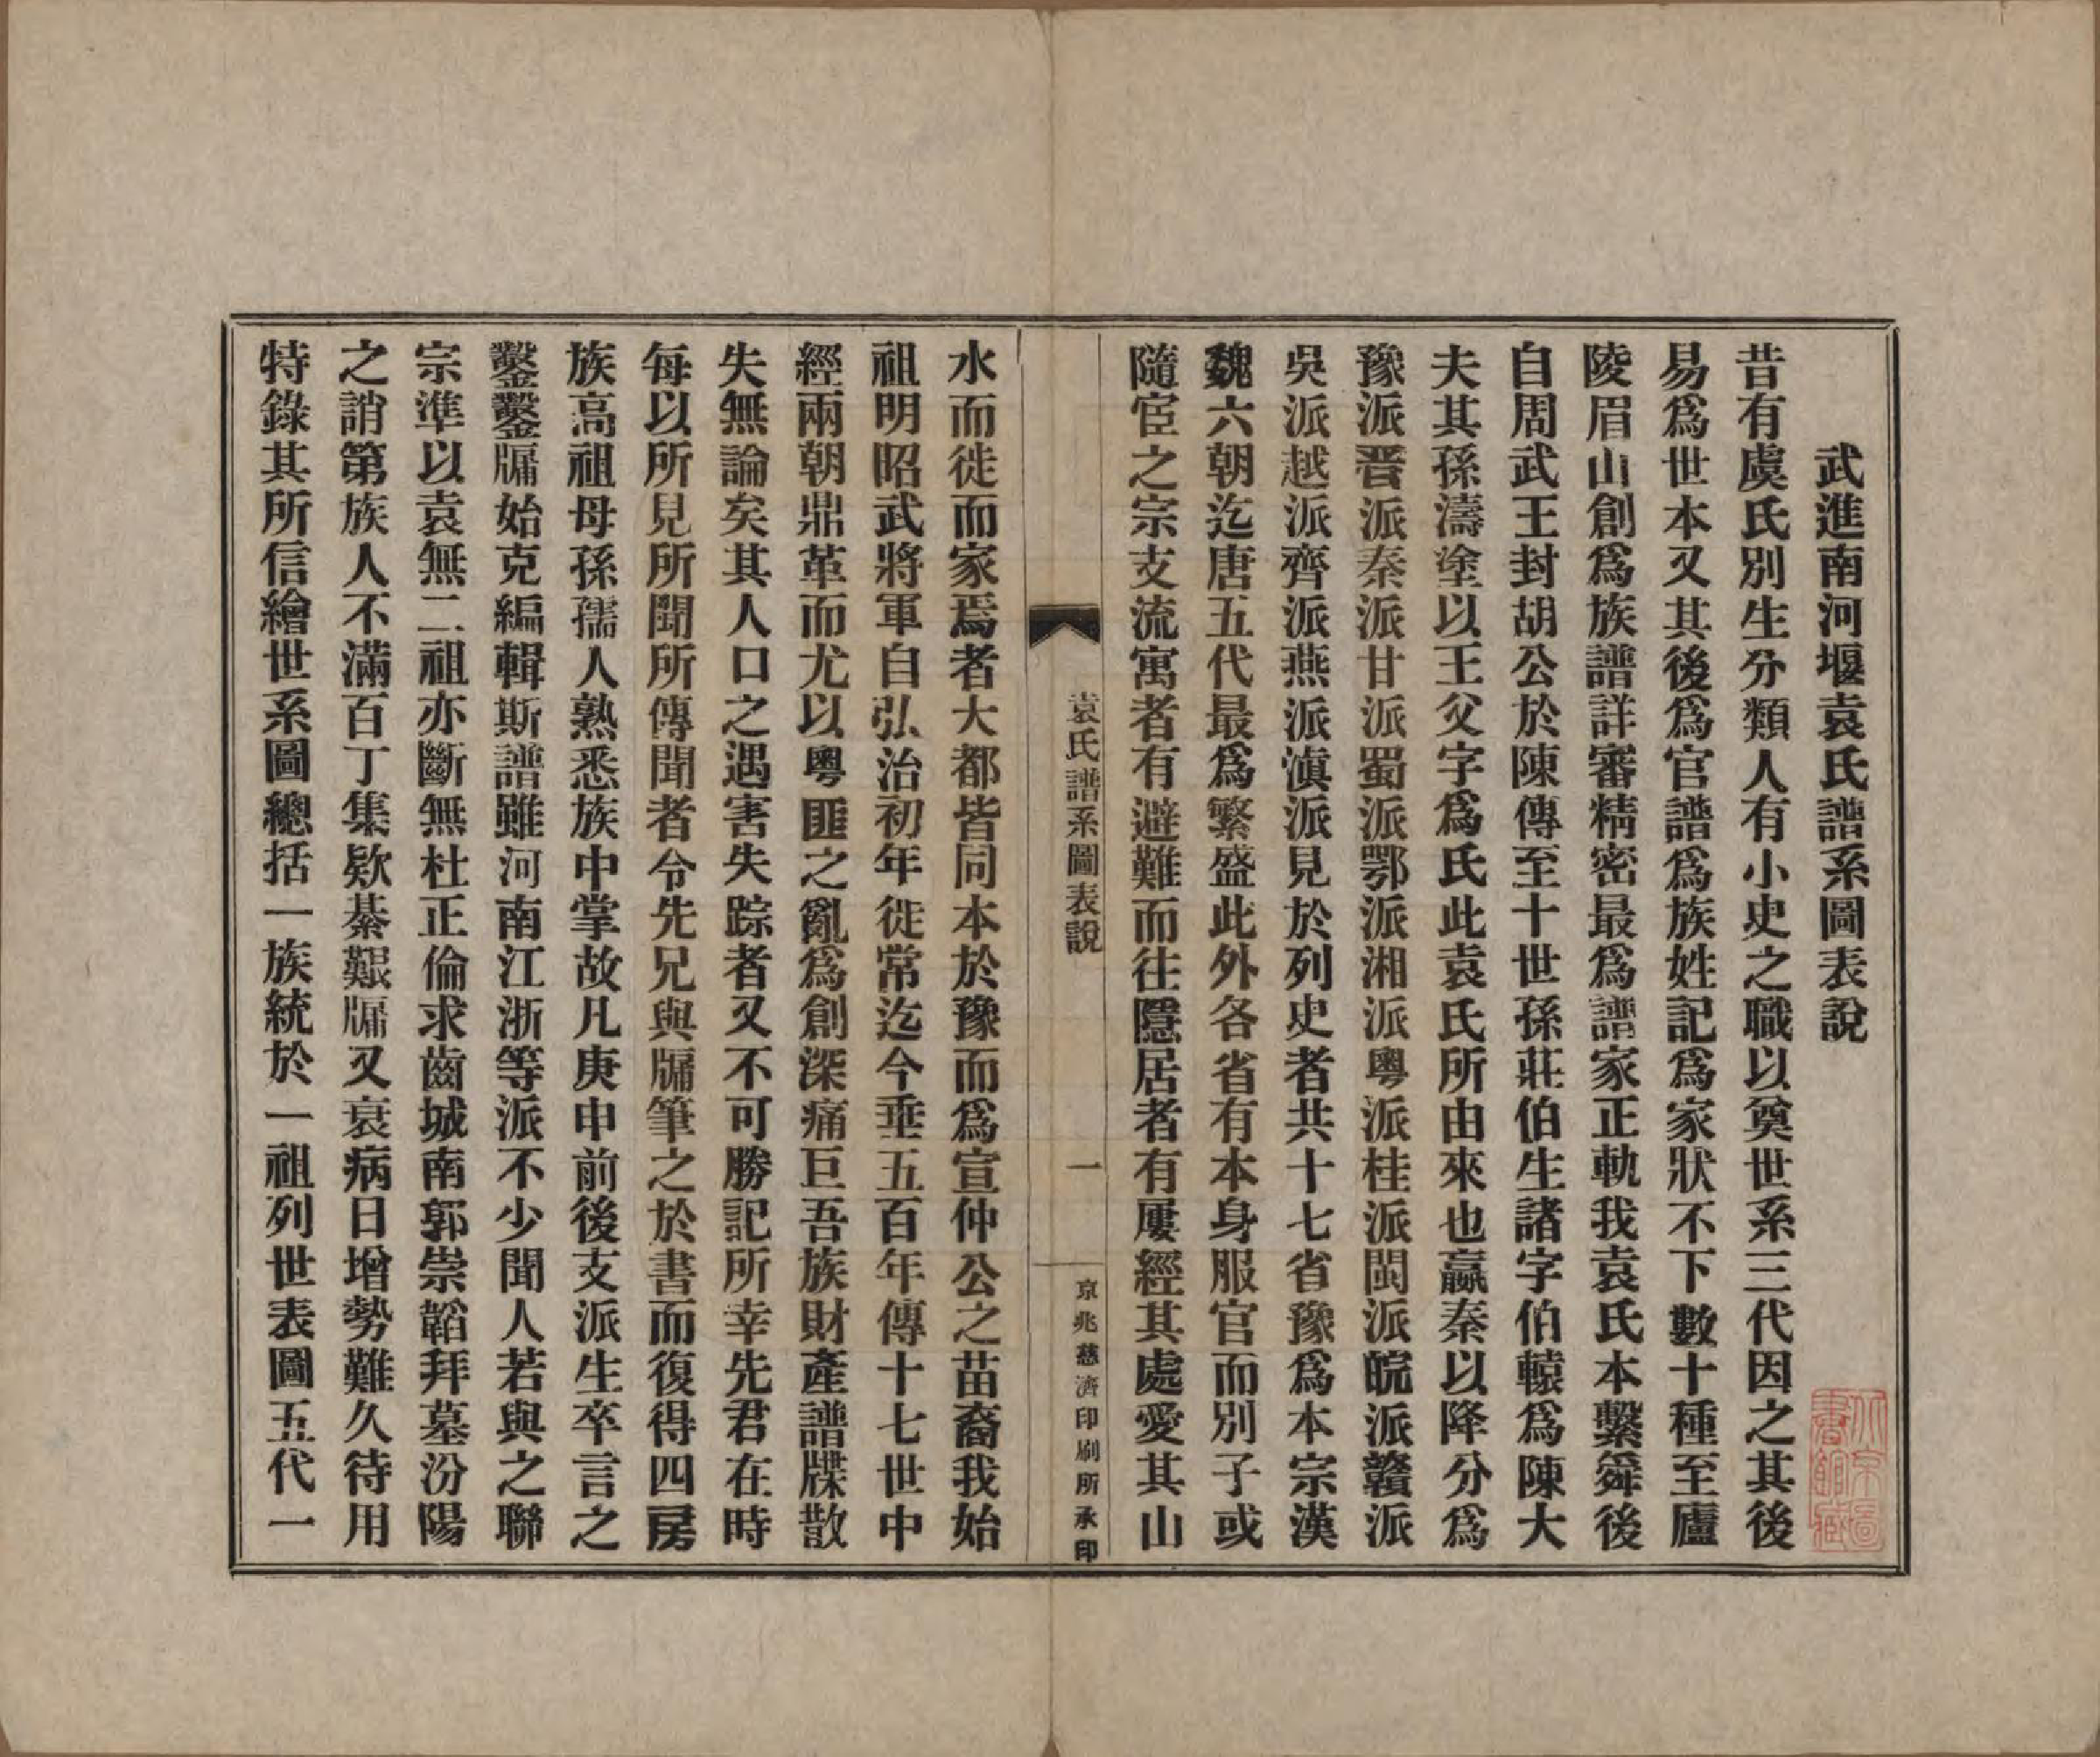 武進南河堰袁氏譜系圖表說
昔有虞氏別生分類人有小史之職以奠世系三代因之其後
易爲世本又其後爲官譜爲族姓記爲家狀不下數十種至廬
陵眉山創爲族譜詳審精密最爲譜家正軌我袁氏本繫舜後
自周武王封胡公於陳傳至十世孫莊伯生諸字伯轅爲陳大
夫其孫濤塗以王父字爲氏此袁氏所由來也嬴秦以降分爲
豫派晋派秦派甘派蜀派鄂派湘派粵派桂派閩派皖派贛派
吳派越派齊派燕派滇派見於列史者共十七省豫爲本宗漢
魏六朝迄唐五代最爲繁盛此外各省有本身服官而別子或
隨宦之宗支流寓者有避難而往隱居者有屢經其處愛其山
袁氏譜系圖表說
一
京兆慈濟印刷所承印
水而徙而家焉者大都皆同本於豫而爲宣仲公之苗裔我始
祖明昭武將軍自弘治初年徙常迄今垂五百年傳十七世中
經兩朝鼎革而尤以粵匪之亂爲創深痛巨吾族財產譜牒散
失無論矣其人口之遇害失踪者又不可勝記所幸先君在時
每以所見所聞所傳聞者令先兄與牖筆之於書而復得四房
族高祖母孫孺人熟悉族中掌故凡庚申前後支派生卒言之
鑿鑿牖始克編輯斯譜雖河南江浙等派不少聞人若與之聯
宗準以袁無二祖亦斷無杜正倫求齒城南郭崇韜拜墓汾陽
之誚第族人不滿百丁集欵綦艱牖又衰病日增勢難久待用
特錄其所信繪世系圖總括一族統於一祖列世表圖五代一